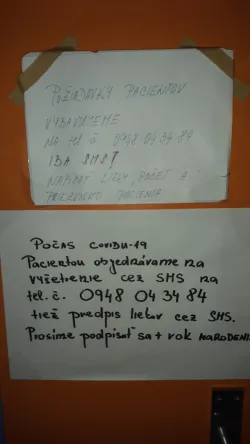 POŽIADAVKY PACIENTOV
VYBAVUJEME
NA tel. č. 0948 04 34 84
IBA SMS
NAPÍSAŤ LIEKY, POČET A
PRIEZVISKO PACIENTA
POČAS COVIDU-19
Pacientov objednávame na
vyšetrenie cez SMS na
tel. č. 0948 04 34 84
tiež predpis liekov cez SMS.
Prosíme podpísať sa + rok NARODENI